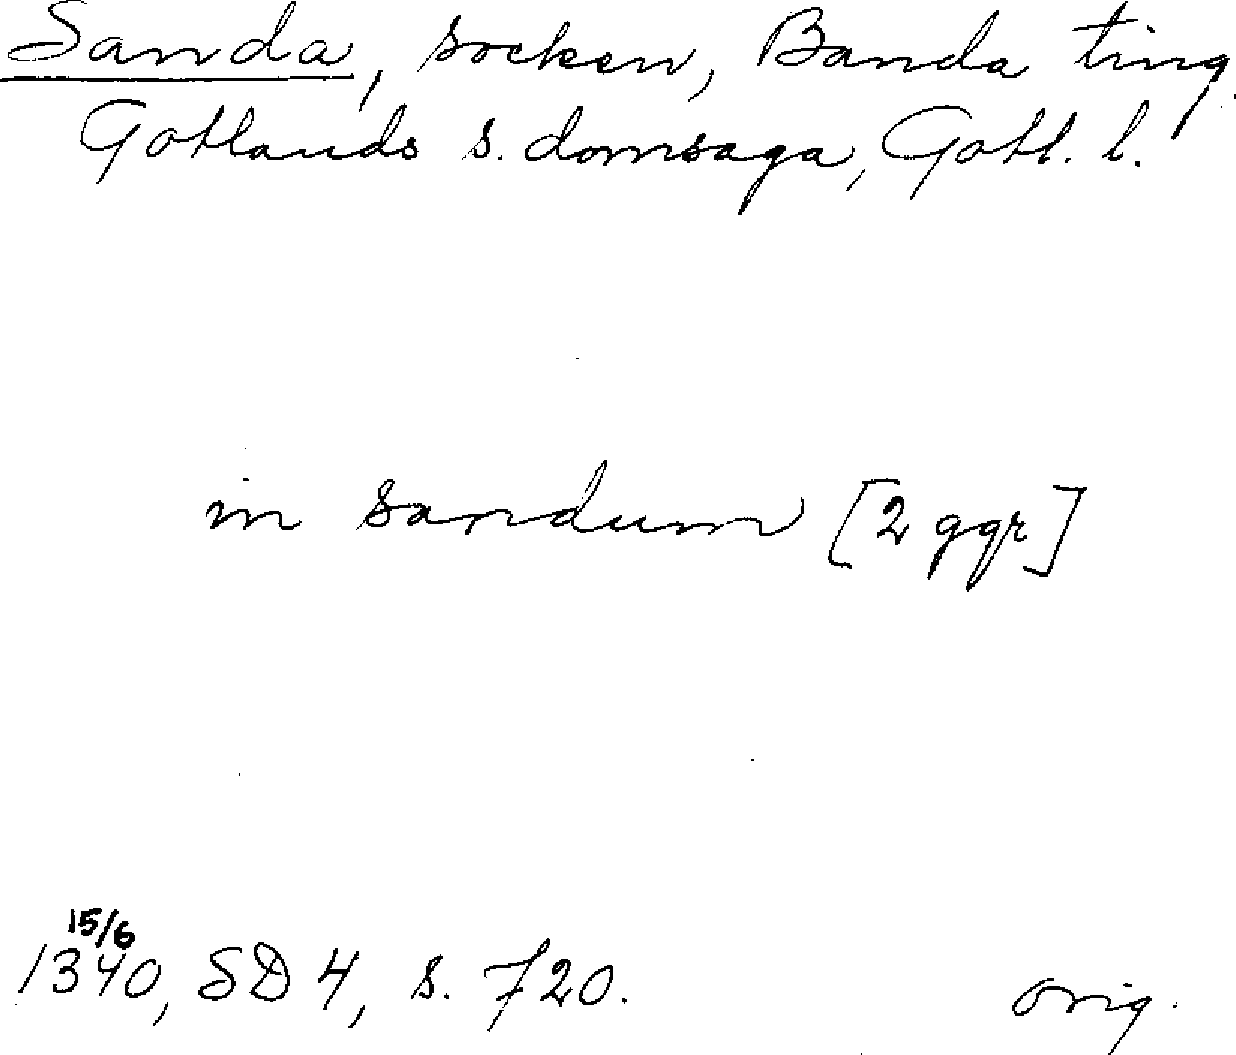 Sanda, socken, Banda ting.
Gotlands s. domsaga, Gotl. l.
in sandum [2 ggr]
15/6
1340, SD 4, s. 720.
orig.